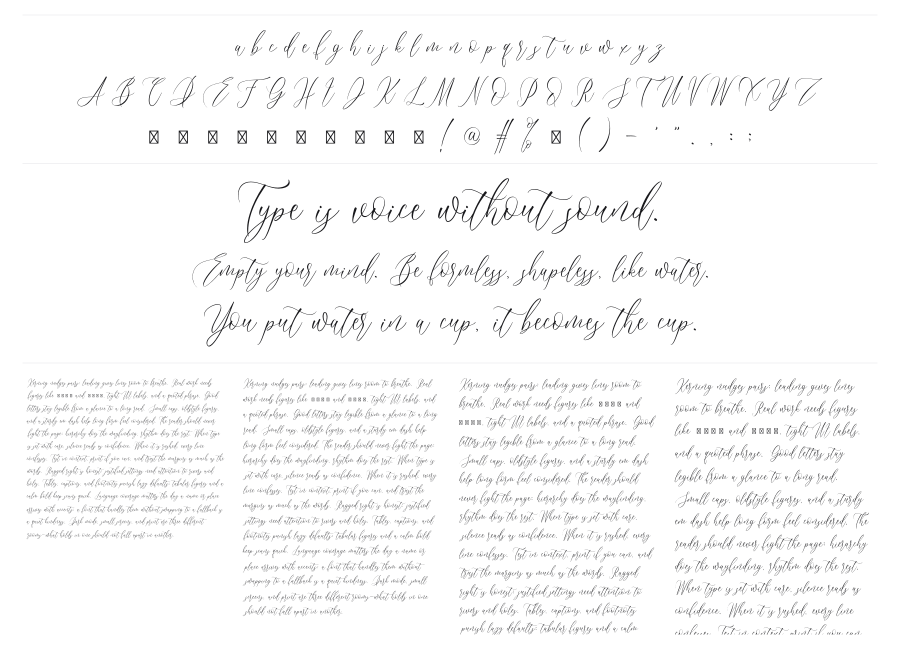 a b c d e f g h i j k l m n o p q r s t u v w x y z
A B C D E F G H I J K L M N O P Q R S T U V W X Y Z
! @ # % ( ) - ' " . , : ;
Type is voice without sound.
Empty your mind. Be formless, shapeless, like water.
You put water in a cup, it becomes the cup.
Kerning nudges pairs; leading gives lines room to breathe. Real work needs
figures like and , tight UI labels, and a quoted phrase. Good
letters stay legible from a glance to a long read. Small caps, oldstyle figures,
and a sturdy em dash help long form feel considered. The reader should never
fight the page: hierarchy does the wayfinding, rhythm does the rest. When type
is set with care, silence reads as confidence. When it is rushed, every line
confesses. Test in context, print if you can, and trust the margins as much as the
words. Ragged right is honest; justified settings need attention to rivers and
holes. Tables, captions, and footnotes punish lazy defaults; tabular figures and a
calm bold keep sanity quick. Language coverage matters the day a name or place
arrives with accents; a font that handles them without swapping to a fallback is
a quiet kindness. Dark mode, small screens, and print are three different
rooms—what holds in one should not fall apart in another.
Kerning nudges pairs; leading gives lines room to breathe. Real
work needs figures like and , tight UI labels, and
a quoted phrase. Good letters stay legible from a glance to a long
read. Small caps, oldstyle figures, and a sturdy em dash help
long form feel considered. The reader should never fight the page:
hierarchy does the wayfinding, rhythm does the rest. When type is
set with care, silence reads as confidence. When it is rushed, every
line confesses. Test in context, print if you can, and trust the
margins as much as the words. Ragged right is honest; justified
settings need attention to rivers and holes. Tables, captions, and
footnotes punish lazy defaults; tabular figures and a calm bold
keep sanity quick. Language coverage matters the day a name or
place arrives with accents; a font that handles them without
swapping to a fallback is a quiet kindness. Dark mode, small
screens, and print are three different rooms—what holds in one
should not fall apart in another.
Kerning nudges pairs; leading gives lines room to
breathe. Real work needs figures like and
, tight UI labels, and a quoted phrase. Good
letters stay legible from a glance to a long read.
Small caps, oldstyle figures, and a sturdy em dash
help long form feel considered. The reader should
never fight the page: hierarchy does the wayfinding,
rhythm does the rest. When type is set with care,
silence reads as confidence. When it is rushed, every
line confesses. Test in context, print if you can, and
trust the margins as much as the words. Ragged
right is honest; justified settings need attention to
rivers and holes. Tables, captions, and footnotes
punish lazy defaults; tabular figures and a calm
Kerning nudges pairs; leading gives lines
room to breathe. Real work needs figures
like and , tight UI labels,
and a quoted phrase. Good letters stay
legible from a glance to a long read.
Small caps, oldstyle figures, and a sturdy
em dash help long form feel considered. The
reader should never fight the page: hierarchy
does the wayfinding, rhythm does the rest.
When type is set with care, silence reads as
confidence. When it is rushed, every line
confesses. Test in context, print if you can,